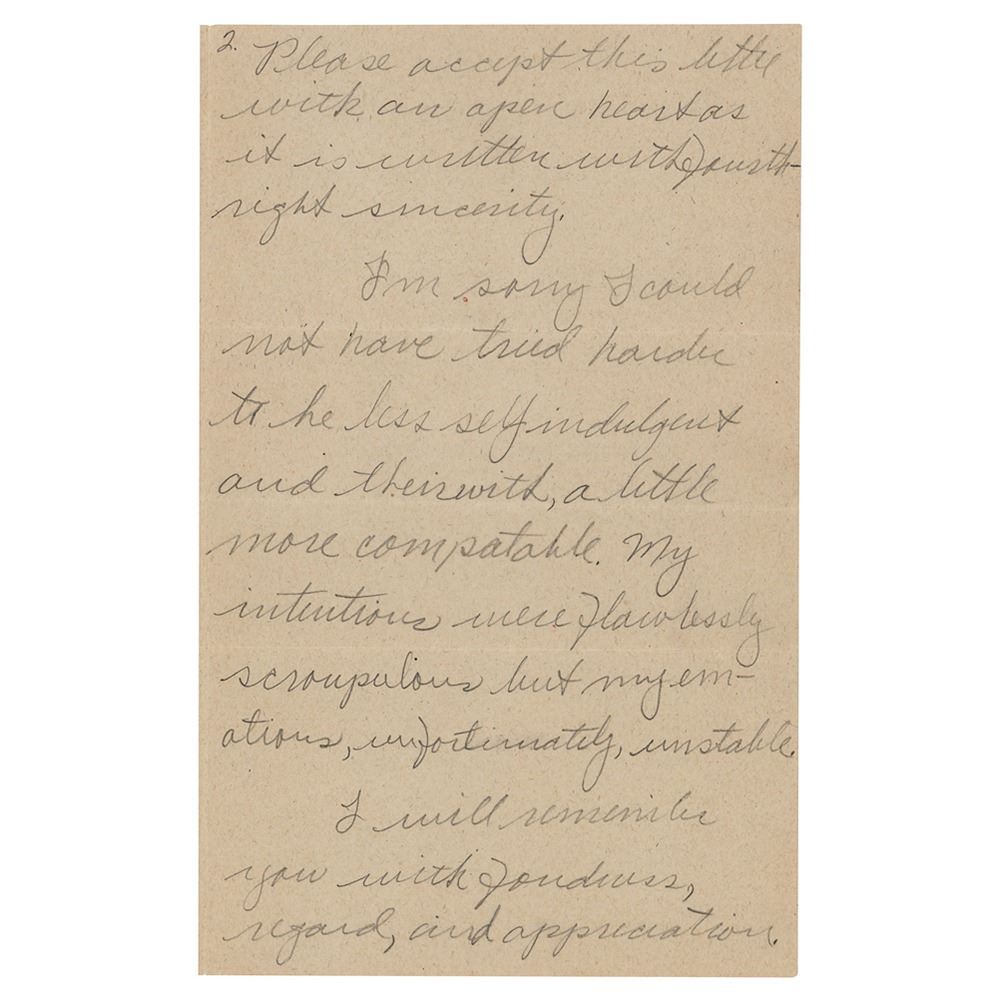 2. Please accept this letter
with an open heart as
it is written with fourth-
right sincerity.
I'm sorry I could
not have tried harder
to be less self indulgent
and theirwith, a little
more compatable. My
intentions were flawlessly
scroupulous but my em-
otions, unfortunately, unstable.
I will remember
you with fondness,
regard, and appreciation.